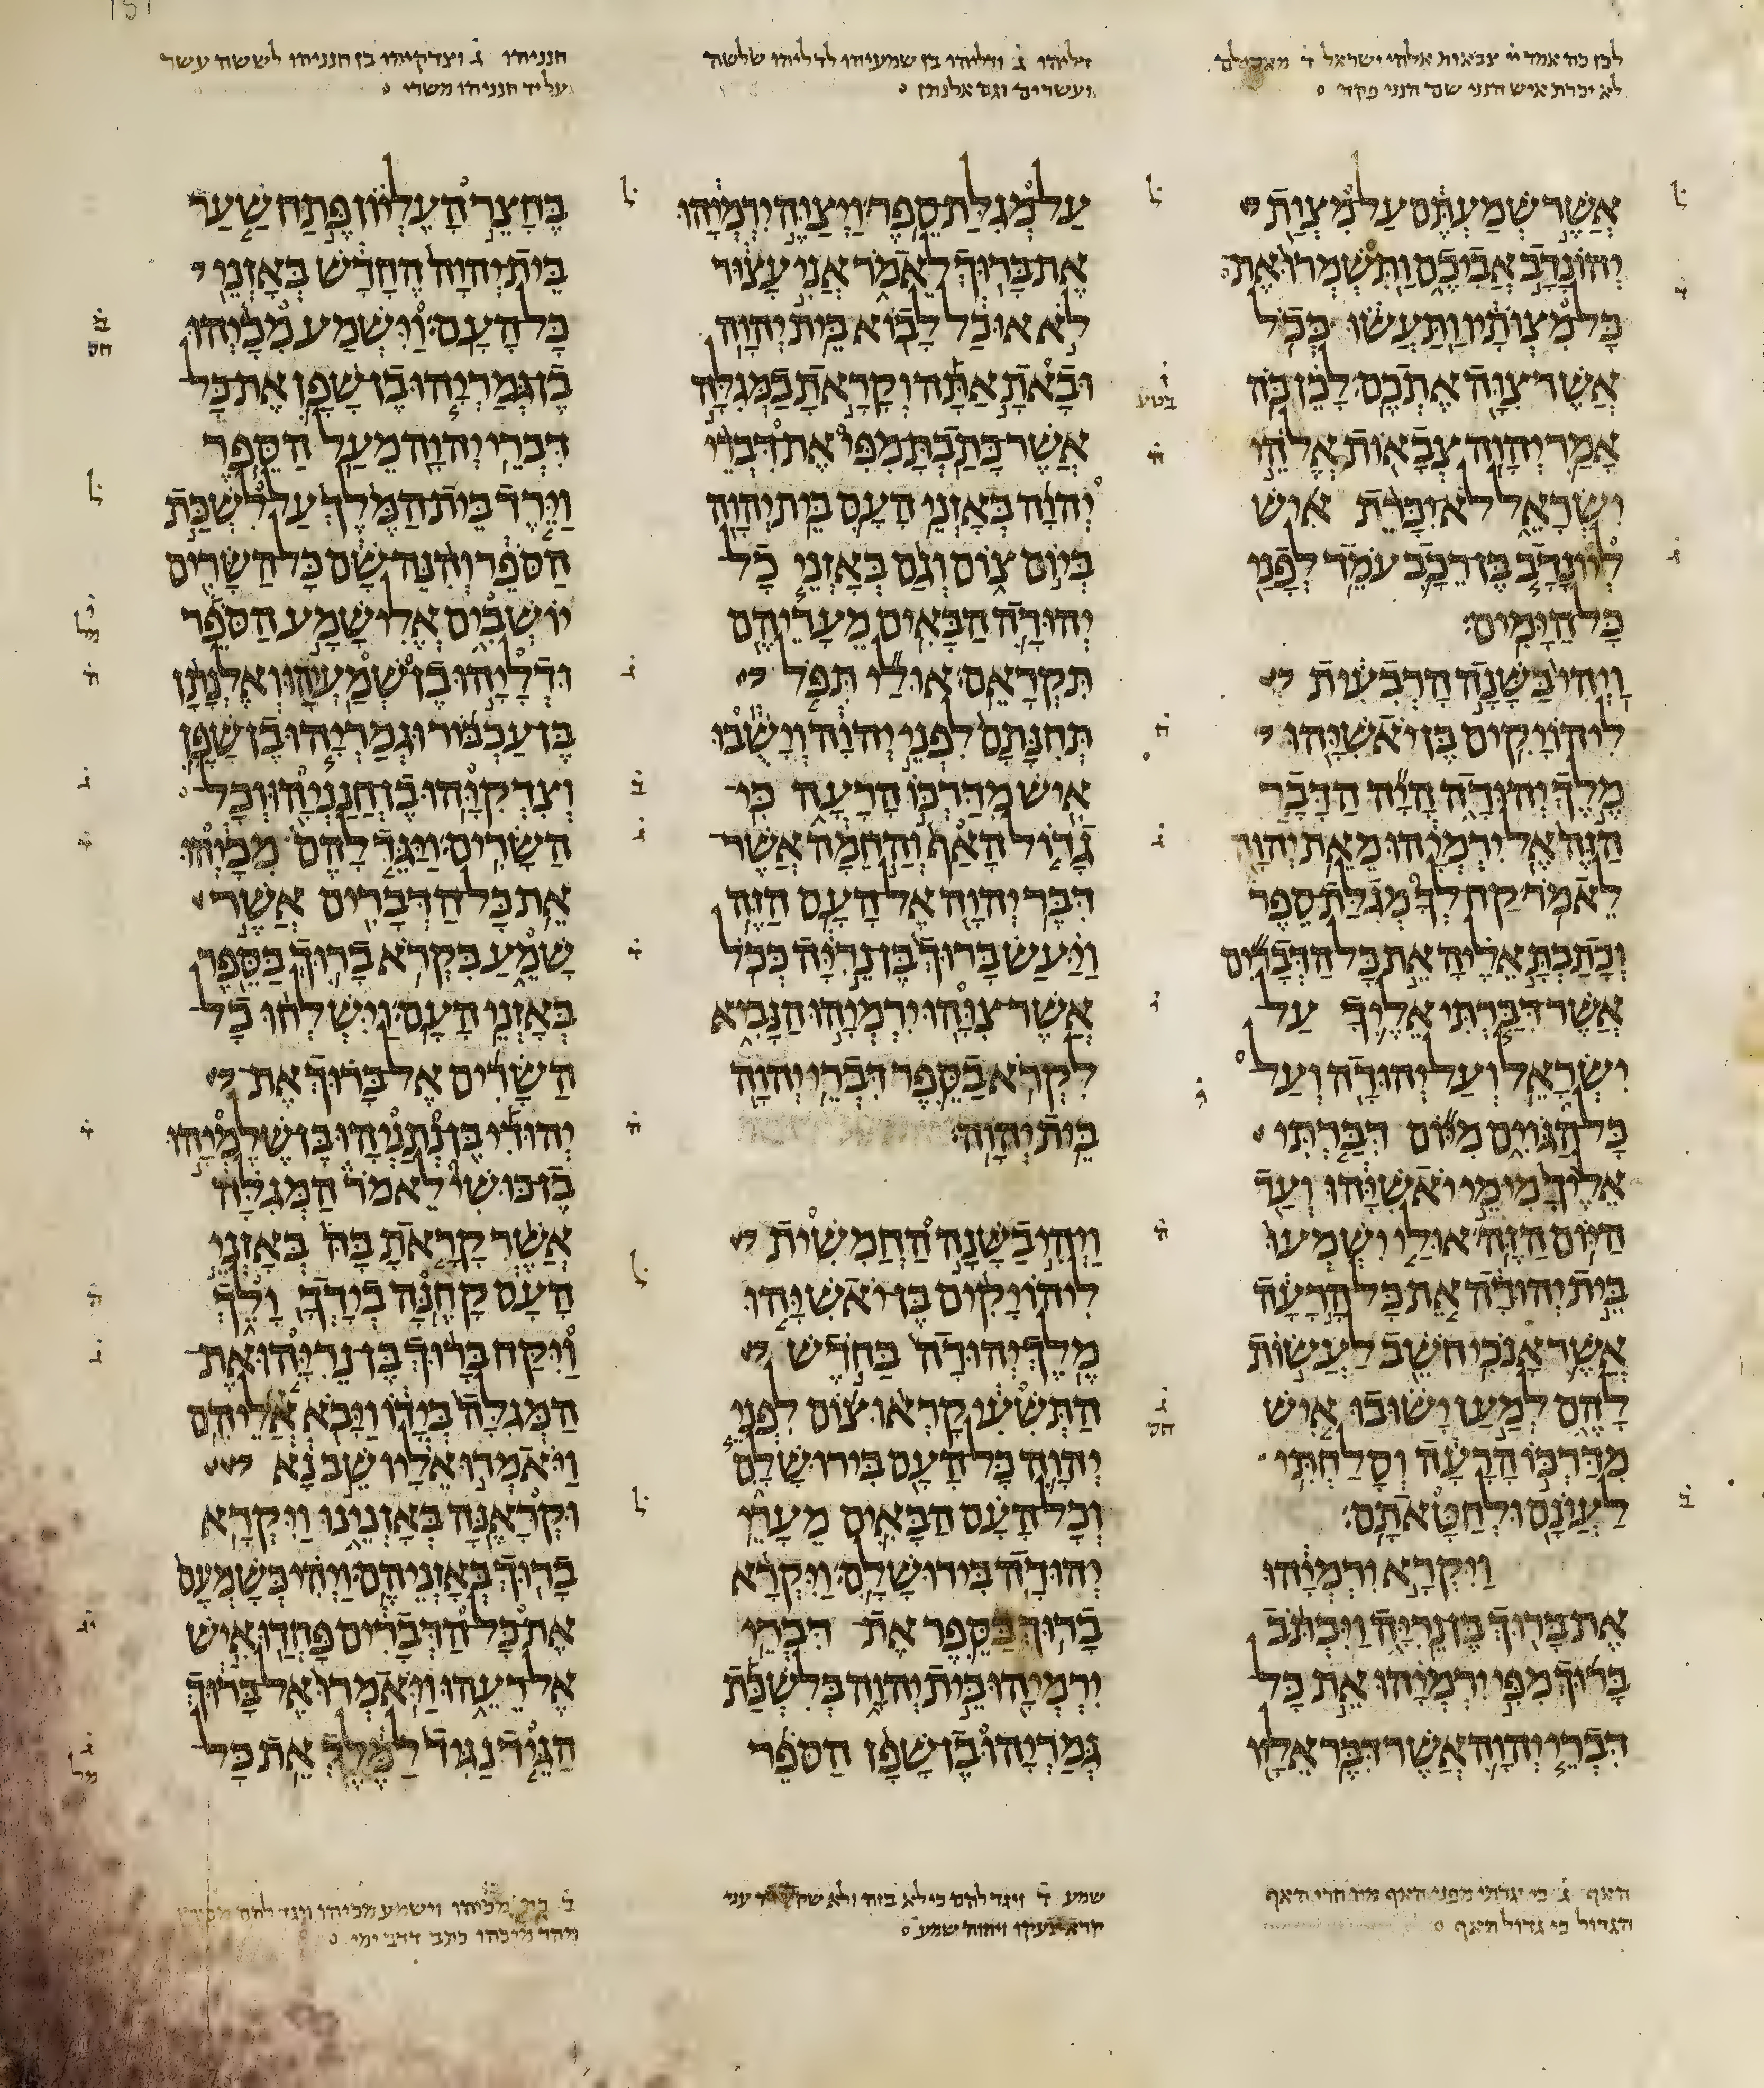 לכן כה אמר ייי צבאות אלהי ישראל
לא יכרת איש הנני שם הנני פקד
דליהו ג ודליהו בן שמעיהו לדליהו שלשה
ועשרים וגם אלנתן
חנניהו ג וצדקיהו בן חנניהו לששה עשר
על יד חנניהו משרי
אשר שמעתם על מצות
יהונדב אביכם ותשמרו את
כל מצותיו ותעשו ככל
אשר צוה אתכם׃ לכן כה
אמר יהוה צבאות אלהי
ישראל לא יכרת איש
ליונדב בן רכב עמד לפני
כל הימים׃
ויהי בשנה הרבעית
ליהויקים בן יאשיהו
מלך יהודה היה הדבר
הזה אל ירמיהו מאת יהוה
לאמר׃ קח לך מגלת ספר
וכתבת אליה את כל הדברים
אשר דברתי אליך על
ישראל ועל יהודה ועל
כל הגוים מיום דברתי
אליך מימי יאשיהו ועד
היום הזה׃ אולי ישמעו
בית יהודה את כל הרעה
אשר אנכי חשב לעשות
להם למען ישובו איש
מדרכו הרעה וסלחתי
לעונם ולחטאתם׃
ויקרא ירמיהו
את ברוך בן נריה ויכתב
ברוך מפי ירמיהו את כל
דברי יהוה אשר דבר אליו
על מגלת ספר׃ ויצוה ירמיהו
את ברוך לאמר אני עצור
לא אוכל לבוא בית יהוה׃
ובאת אתה וקראת במגלה
אשר כתבת מפי את דברי
יהוה באזני העם בית יהוה
ביום צום וגם באזני כל
יהודה הבאים מעריהם
תקראם׃ אולי תפל
תחנתם לפני יהוה וישבו
איש מדרכו הרעה כי
גדול האף והחמה אשר
דבר יהוה אל העם הזה׃
ויעש ברוך בן נריה ככל
אשר צוהו ירמיהו הנביא
לקרא בספר דברי יהוה
בית יהוה׃
ויהי בשנה החמשית
ליהויקים בן יאשיהו
מלך יהודה בחדש
התשעי קראו צום לפני
יהוה כל העם בירושלם
וכל העם הבאים מערי
יהודה בירושלם׃ ויקרא
ברוך בספר את דברי
ירמיהו בית יהוה בלשכת
גמריהו בן שפן הספר
בחצר העליון פתח שער
בית יהוה החדש באזני
כל העם׃ וישמע מכיהו
בן גמריהו בן שפן את כל
דברי יהוה מעל הספר׃
וירד בית המלך על לשכת
הספר והנה שם כל השרים
יושבים אלישמע הספר
ודליהו בן שמעיהו ואלנתן
בן עכבור וגמריהו בן שפן
וצדקיהו בן חנניהו וכל
השרים׃ ויגד להם מכיהו
את כל הדברים אשר
שמע בקרא ברוך בספר
באזני העם׃ וישלחו כל
השרים אל ברוך את
יהודי בן נתניהו בן שלמיהו
בן כושי לאמר המגלה
אשר קראת בה באזני
העם קחנה בידך ולך
ויקח ברוך בן נריהו את
המגלה בידו ויבא אליהם׃
ויאמרו אליו שב נא
וקראנה באזנינו ויקרא
ברוך באזניהם׃ ויהי כשמעם
את כל הדברים פחדו איש
אל רעהו ויאמרו אל ברוך
הגיד נגיד למלך את כל
האף ג כי יגרתי מפני האף מה חרי האף
הגדול כי גדול האף
שמע ויגד להם כי לא בזה ולא שקץ
ויהוה שמע
מכיהו וישמע מכיהו ויגד להם
דברי ימי